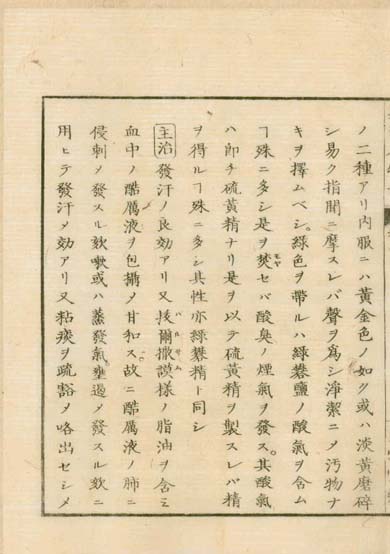 ノ二種アリ内服ニハ黄金色ノ如ク或ハ淡黄磨碎
シ易ク指間ニ摩スレバ聲ヲ爲シ淨潔ニメ汚物ナ
キヲ擇ムベシ緑色ヲ帶ルハ緑礬鹽ノ酸氣ヲ含ム
ヿ殊ニ多シ是ヲ焚セバ酸臭ノ煙氣ヲ發ス其酸氣
ハ即チ硫黄精ナリ是ヲ以テ硫黄精ヲ製スレバ精
ヲ得ルヿ殊ニ多シ其性亦緑礬精ト同シ
主治 發汗ノ良効アリ又抜爾撒謨様ノ脂油ヲ含ミ
血中ノ酷厲液ヲ包攝メ甘和ス故ニ酷厲液ノ肺ニ
侵刺メ發スル欬嗽或ハ蒸發氣壅遏メ發スル欬ニ
用ヒテ發汗メ効アリ又粘痰ヲ疏豁メ咯出セシメ